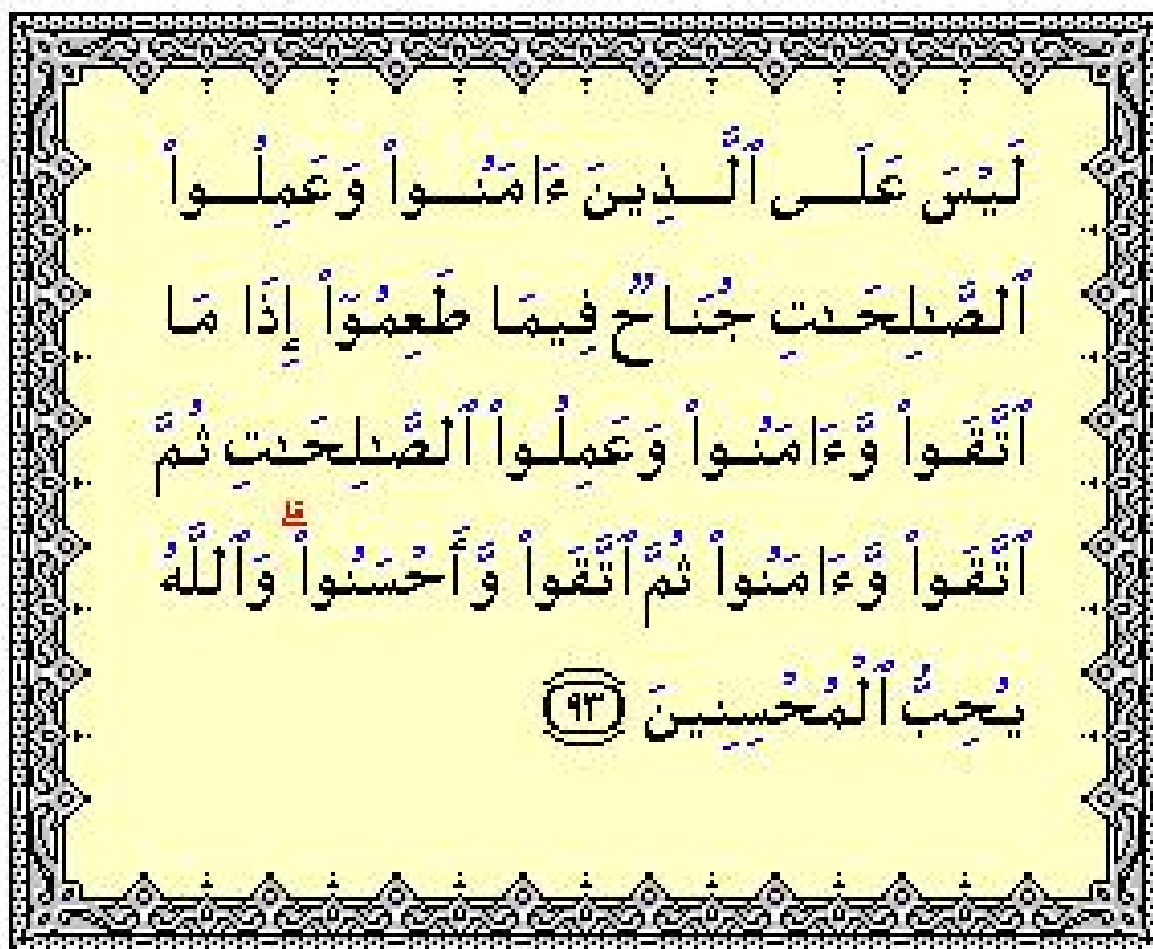 لَيْسَ عَلَى ٱلَّذِينَ ءَامَنُوا۟ وَعَمِلُوا۟
ٱلصَّـٰلِحَـٰتِ جُنَاحٌ فِيمَا طَعِمُوٓا۟ إِذَا مَا
ٱتَّقَوا۟ وَّءَامَنُوا۟ وَعَمِلُوا۟ ٱلصَّـٰلِحَـٰتِ ثُمَّ
ٱتَّقَوا۟ وَّءَامَنُوا۟ ثُمَّ ٱتَّقَوا۟ وَّأَحْسَنُوا۟ ۗ وَٱللَّهُ
يُحِبُّ ٱلْمُحْسِنِينَ ٩٣